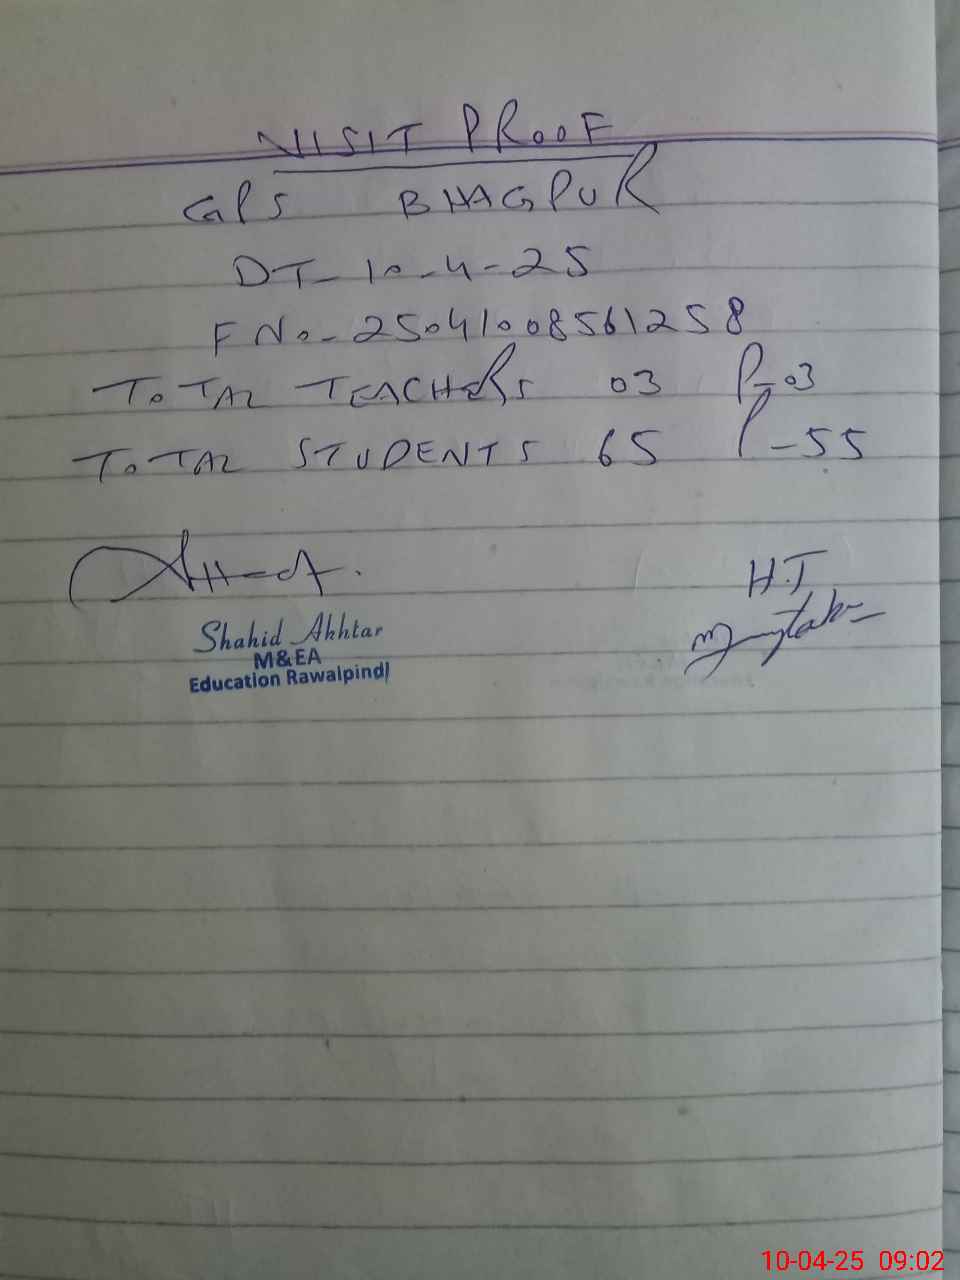 VISIT PROOF
GPS BHAGPUR
DT- 10-4-25
F No- 25041008561258
TOTAL TEACHERS 03 P-03
TOTAL STUDENTS 65 P-55
H.T
Shahid Akhtar
M&EA
Education Rawalpindi
10-04-25 09:02